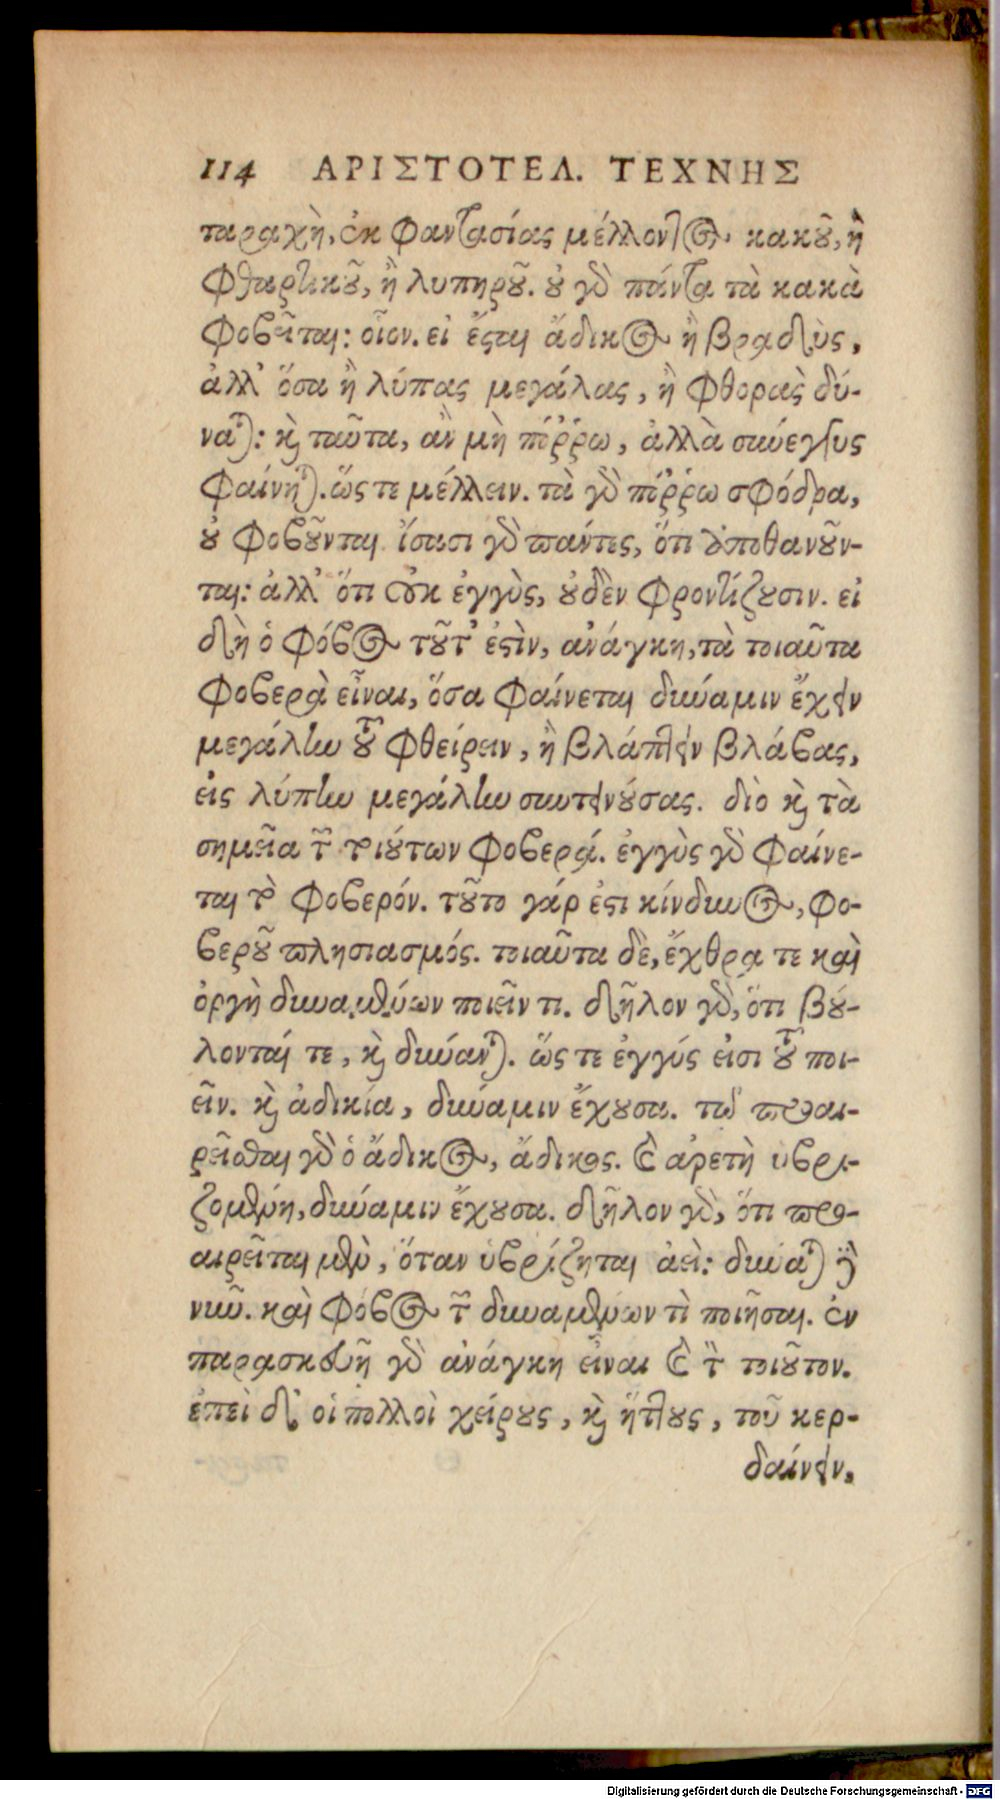 114 ΑΡΙΣΤΟΤΕΛ. ΤΕΧΝΗΣ
ταραχὴ, ἐκ φαντασίας μέλλοντος κακοῦ, ἢ
φθαρτικοῦ, ἢ λυπηροῦ. οὐ γὸ πάντα τὰ κακὰ
φοβεῖται: οἷον. εἰ ἔσται ἄδικος ἢ βραδὺς,
ἀλλ' ὅσα ἢ λύπας μεγάλας, ἢ φθορὰς δύ-
ναται: καὶ ταῦτα, ἂν μὴ πόῤῥω, ἀλλὰ σύνεγγυς
φαίνηται. ὥς τε μέλλειν. τὰ γὸ πόῤῥω σφόδρα,
οὐ φοβοῦνται. ἴσασι γὸ πάντες, ὅτι ἀποθανοῦν-
ται: ἀλλ' ὅτι οὐκ ἐγγὺς, οὐδὲν φροντίζουσιν. εἰ
δὴ ὁ φόβος τοῦτ' ἐστὶν, ἀνάγκη, τὰ τοιαῦτα
φοβερὰ εἶναι, ὅσα φαίνεται δύναμιν ἔχειν
μεγάλην τοῦ φθείρειν, ἢ βλάπτειν βλάβας,
εἰς λύπην μεγάλην συντεινούσας. διὸ καὶ τὰ
σημεῖα τῶν τοιούτων φοβερά. ἐγγὺς γὸ φαίνε-
ται τὸ φοβερόν. τοῦτο γάρ ἐστι κίνδυνος, φο-
βεροῦ πλησιασμός. τοιαῦτα δὲ, ἔχθρα τε καὶ
ὀργὴ δυναμένων ποιεῖν τι. δῆλον γὸ, ὅτι βού-
λονταί τε, καὶ δύνανται. ὥς τε ἐγγύς εἰσι τοῦ ποι-
εῖν. καὶ ἀδικία, δύναμιν ἔχουσα. τῷ προαι-
ρεῖσθαι γὸ ὁ ἄδικος, ἄδικος. καὶ ἀρετὴ ὑβρι-
ζομένη, δύναμιν ἔχουσα. δῆλον γὸ, ὅτι προ-
αιρεῖται μὲν, ὅταν ὑβρίζηται ἀεὶ: δύναται δὲ
νῦν. καὶ φόβος τῶν δυναμένων τὶ ποιῆσαι. ἐν
παρασκευῇ γὸ ἀνάγκη εἶναι καὶ τὸν τοιοῦτον.
ἐπεὶ δ' οἱ πολλοὶ χείρους, καὶ ἥττους, τοῦ κερ-
δαίνειν,
Digitalisierung gefördert durch die Deutsche Forschungsgemeinschaft - DFG